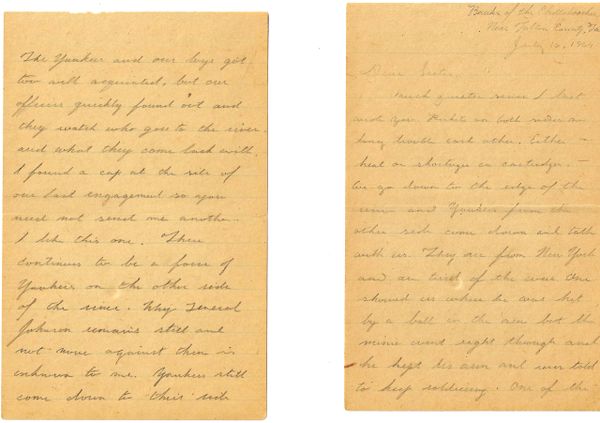 The Yankees and our boys got
too well acquainted, but our
officers quickly found out and
they watch who goes to the river
and what they come back with.
I found a cap at the site of
our last engagement so you
need not send me another.
I like this one. There
continues to be a force of
Yankees on the other side
of the river. Why General
Johnson remains still and
not move against them is
unknown to me. Yankees still
come down to their side
Banks of the Chattahoochee
Near Fulton County, Ga
July 10,
Dear Sister
Much quieter since I last
wrote you. Pickets on both sides
trouble each other. Either
heat or shortage in cartridges.
We go down to the edge of the
river and Yankees from the
other side come down and talk
with us. They are from New York
and are tired of the war. One
showed us where he was hit
by a ball in the arm but the
minie went right through and
he kept his arm and was told
to keep soldiering. One of the